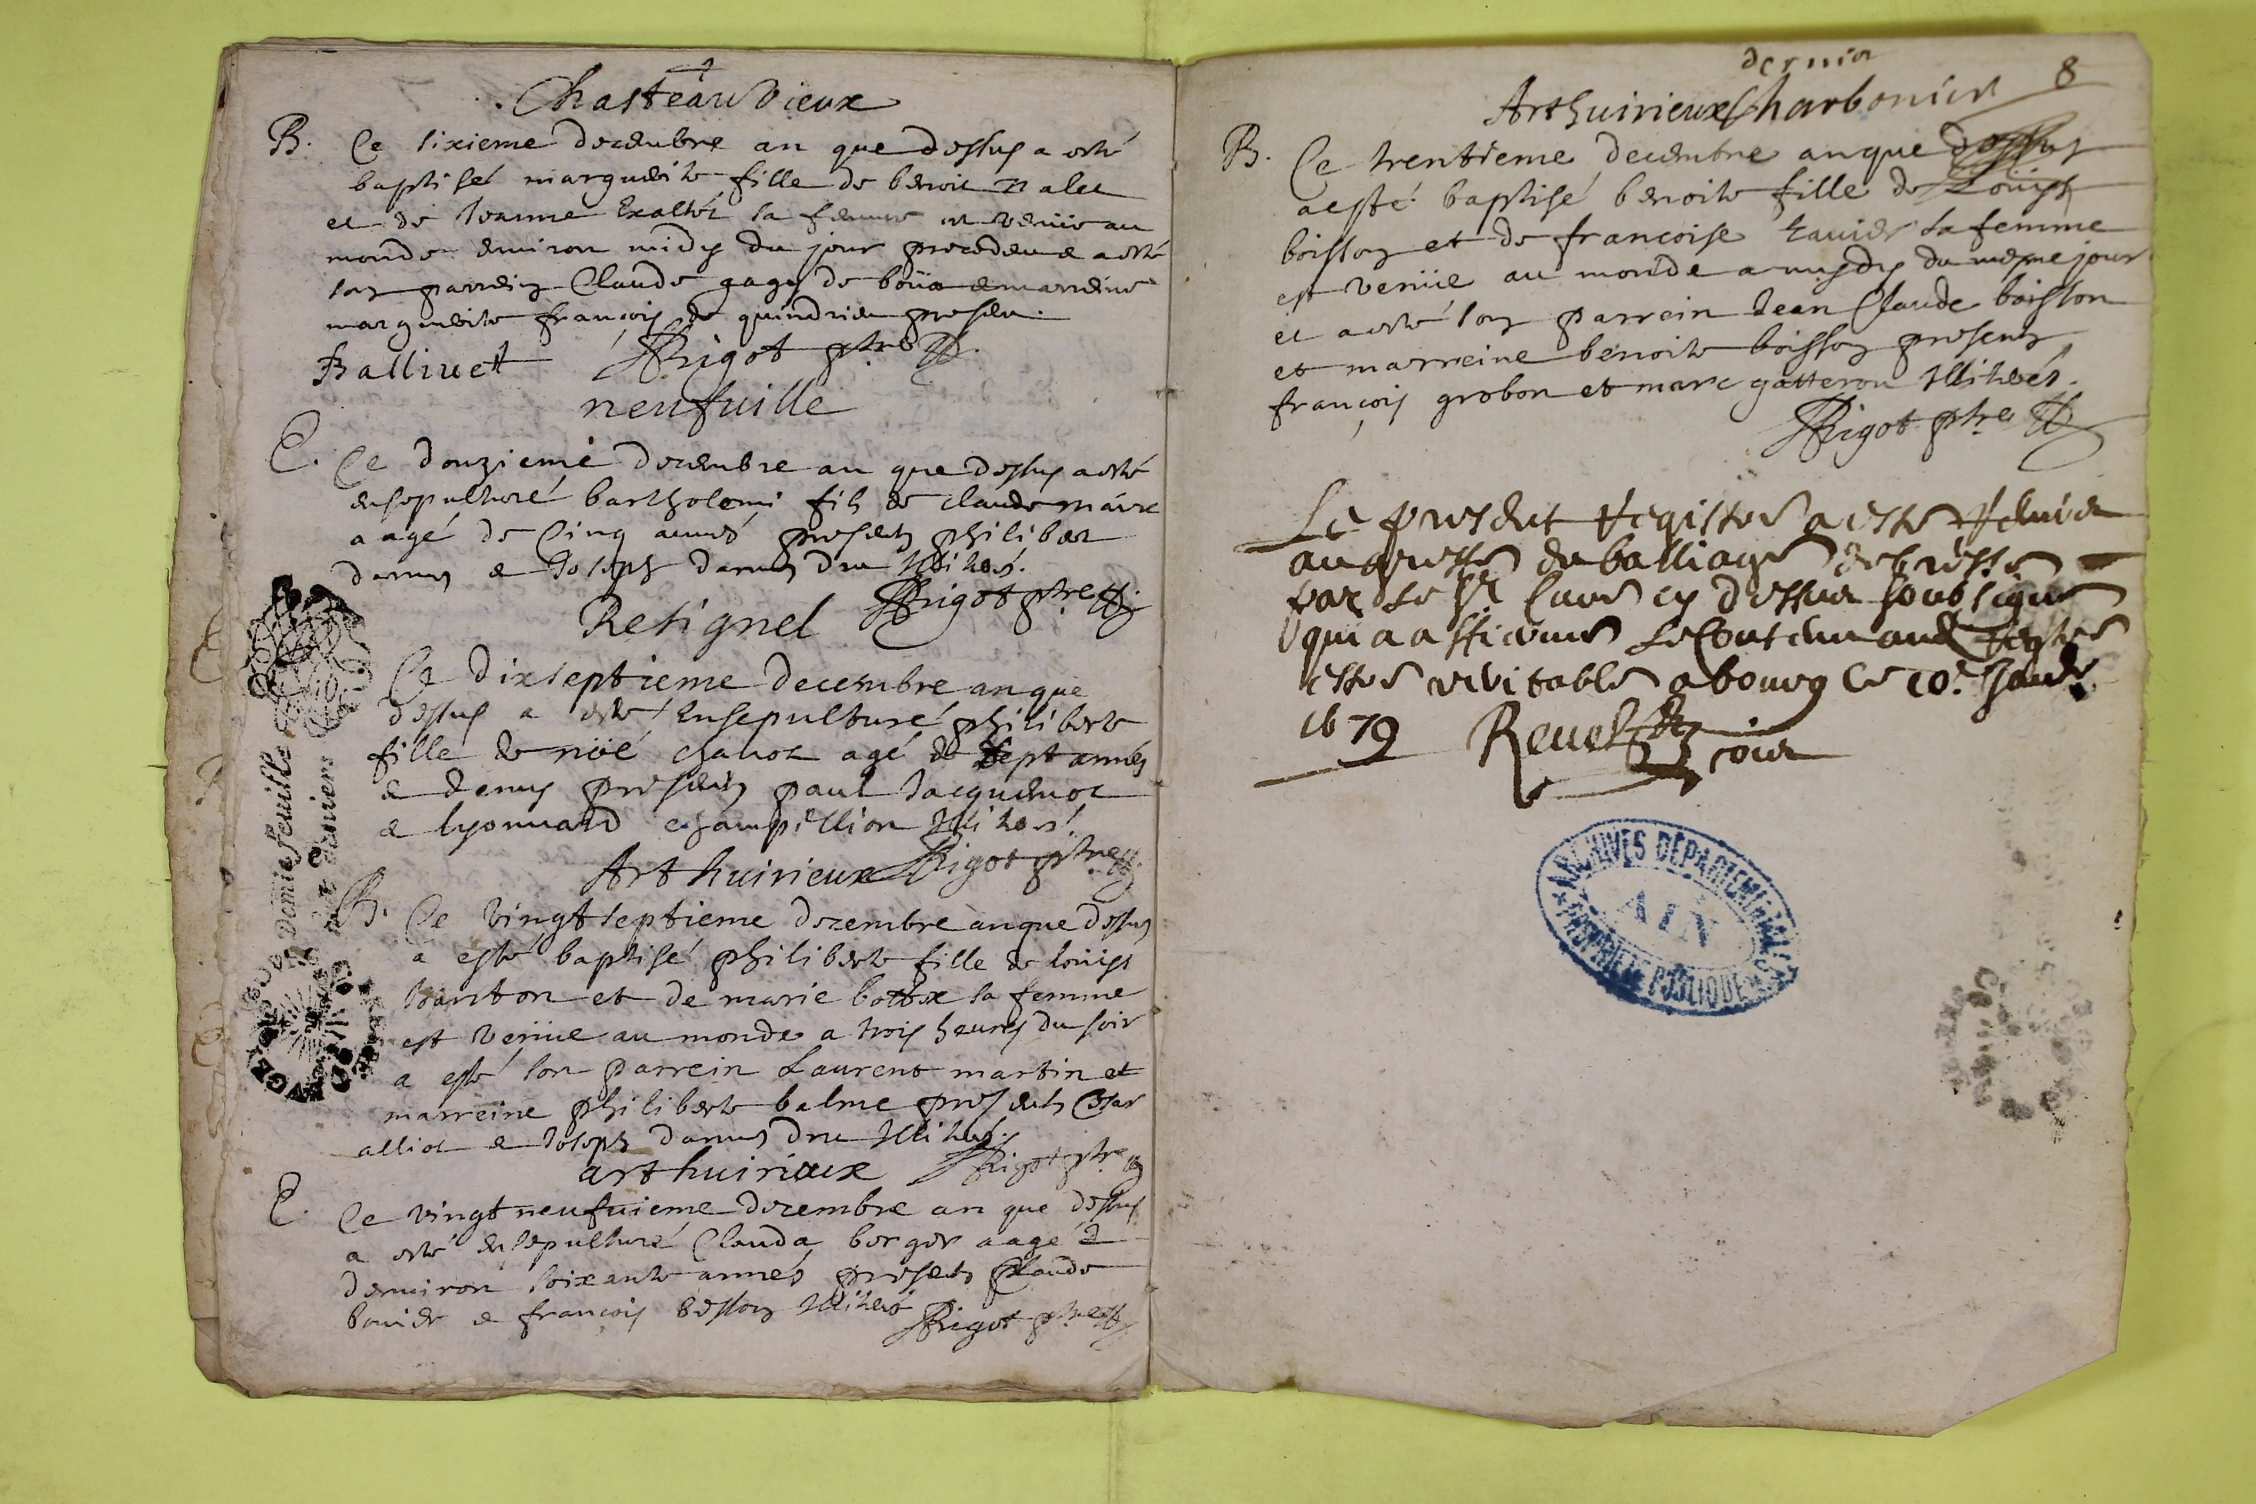 Chasteauvieux
B. Ce sixieme decembre an que dessus a esté
baptisé marguerite fille de benoit
et de Jeanne sa femme est venüe au
monde environ midy du jour precedent a esté
son parrein Claude gagy de et marreine
marguerite françois de quindrieu presen.
Ballivet Rigot ptre
neufville
E. Ce douzieme decembre an que dessus a esté
ensepulturé bartholomi fils de claude
aagé de Cinq années presens philibert
darnus et Joseph darnus
Rigot ptre
Resignel
Ce dixseptieme decembre an que
dessus a esté Ensepulturé philiberte
fille de noë chanot agé de sept annés
et demy presens paul Jacquemot
et lyonnard champillion Illiterés.
Rigot ptre
Arthuirieux
B. Ce vingtseptieme decembre an que dessus
a esté baptisé philiberte fille de loüis
et de marie sa femme
est venüe au monde a trois heures du soir
a esté son parrein Laurent martin et
marreine philiberte balme presents Cesar
alliot et Joseph darnus
arthuirieux Rigot ptre
E. Ce vingt neufvieme decembre an que dessus
a esté ensepulturé Clauda berger aagé
denviron soixante annés presents Claude
bouvier et françois Illiterés Rigot ptre
dernier
8
Arthuirieux Charbonier
B. Ce trentieme decembre an que dessus
a esté baptisé benoite fille de Loüis
boisson et de francoise sa femme
est venüe au monde a mydy du mesme jour
et a esté son parrein Jean Claude boisson
et marreine benoite boisson presents
françois grobon et marc gatteron Illiterés.
Rigot ptre
Le present Registre a esté Remis
au greffe du balliage de bresse
par le Sr Curé cy dessus soubsigné
qui a affirmé le Contenu aud Registre
estre veritable a bourg ce 10e Janvr
1679 Revel
Demie feuille
deniers
ARCHIVES DÉPARTEMENTALES
AIN
PROPRIÉTÉ PUBLIQUE